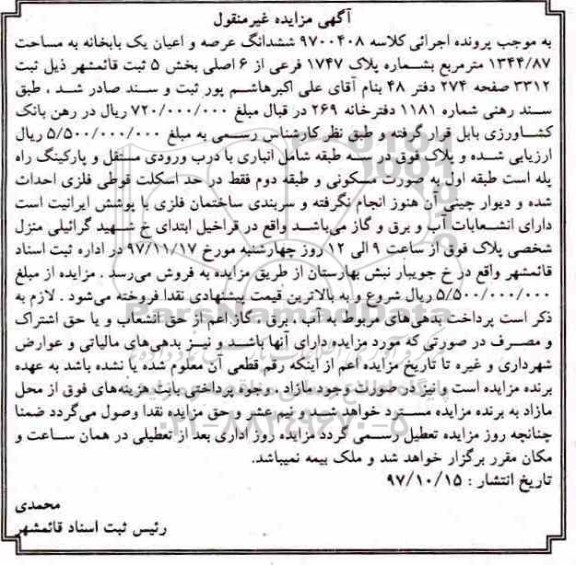 آگهی مزایده غیرمنقول
به موجب پرونده اجرائی کلاسه ۹۷۰۰۴۰۸ ششدانگ عرصه و اعیان یک بابخانه به مساحت
۱۳۴۴/۸۷ مترمربع بشماره پلاک ۱۷۴۷ فرعی از ۶ اصلی بخش ۵ ثبت قائمشهر ذیل ثبت
۳۳۱۲ صفحه ۲۷۴ دفتر ۴۸ بنام آقای علی اکبرهاشم پور ثبت و سند صادر شد ، طبق
سند رهنی شماره ۱۱۸۱ دفترخانه ۲۶۹ در قبال مبلغ ۷۲۰/۰۰۰/۰۰۰ ریال در رهن بانک
کشاورزی بابل قرار گرفته و طبق نظر کارشناس رسمی به مبلغ ۵/۵۰۰/۰۰۰/۰۰۰ ریال
ارزیابی شده و پلاک فوق در سه طبقه شامل انباری با درب ورودی مستقل و پارکینگ راه
پله است طبقه اول به صورت مسکونی و طبقه دوم فقط در حد اسکلت قوطی فلزی احداث
شده و دیوار چینی آن هنوز انجام نگرفته و سربندی ساختمان فلزی با پوشش ایرانیت است
دارای انشعابات آب و برق و گاز می‌باشد واقع در قراخیل ابتدای خ شهید گرائیلی منزل
شخصی پلاک فوق از ساعت ۹ الی ۱۲ روز چهارشنبه مورخ ۹۷/۱۱/۱۷ در اداره ثبت اسناد
قائمشهر واقع در خ جویبار نبش بهارستان از طریق مزایده به فروش می‌رسد . مزایده از مبلغ
۵/۵۰۰/۰۰۰/۰۰۰ ریال شروع و به بالاترین قیمت پیشنهادی نقدا فروخته می‌شود . لازم به
ذکر است پرداخت بدهی‌های مربوط به آب ، برق ، گاز اعم از حق انشعاب و یا حق اشتراک
و مصرف در صورتی که مورد مزایده دارای آنها باشد و نیز بدهی‌های مالیاتی و عوارض
شهرداری و غیره تا تاریخ مزایده اعم از اینکه رقم قطعی آن معلوم شده یا نشده باشد به عهده
برنده مزایده است و نیز در صورت وجود مازاد ، وجوه پرداختی بابت هزینه‌های فوق از محل
مازاد به برنده مزایده مسترد خواهد شد و نیم عشر و حق مزایده نقدا وصول می‌گردد ضمنا
چنانچه روز مزایده تعطیل رسمی گردد مزایده روز اداری بعد از تعطیلی در همان ساعت و
مکان مقرر برگزار خواهد شد و ملک بیمه نمیباشد.
تاریخ انتشار : ۹۷/۱۰/۱۵
محمدی
رئیس ثبت اسناد قائمشهر
ParsNamadData
۰۲۱-۸۸۳۴۹۶۷۰-۵